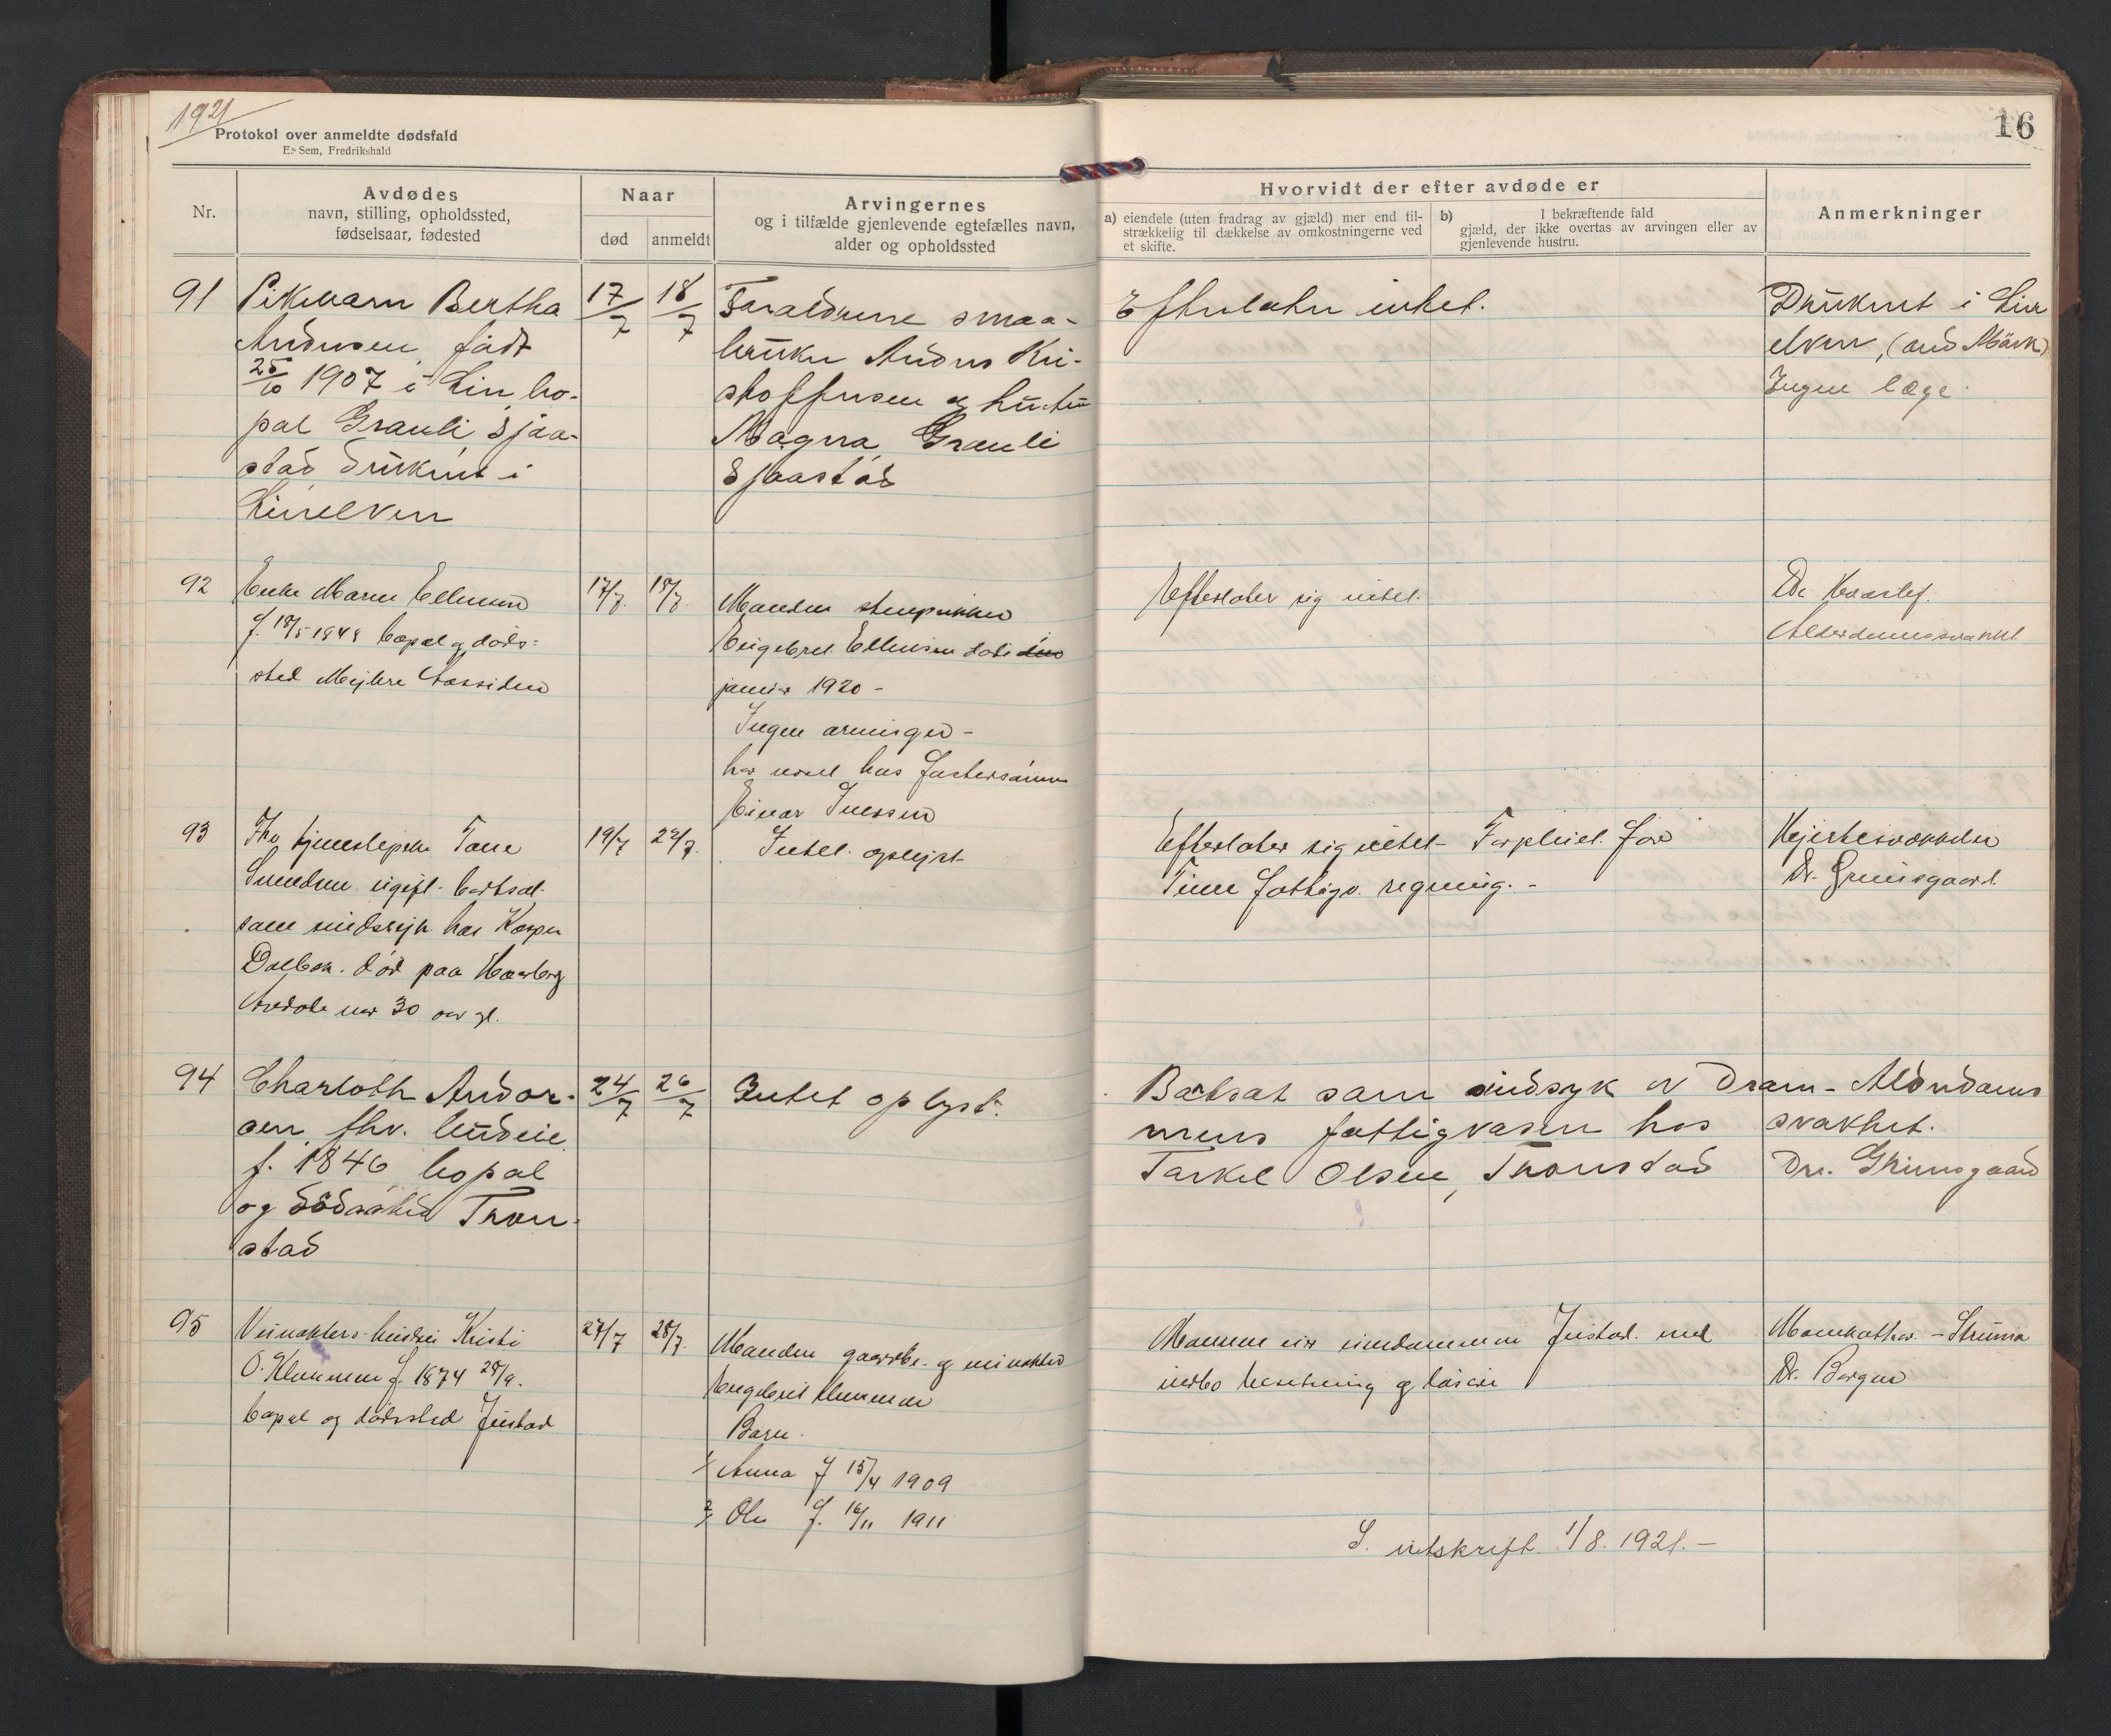 1921
Protokol over anmeldte dødsfald
E. Sem, Fredrikshald
16
Nr.
Avdødes
navn, stilling, opholdssted,
fødselsaar, fødested
Naar
død
anmeldt
Arvingernes
og i tilfælde gjenlevende egtefælles navn,
alder og opholdssted
Hvorvidt der efter avdøde er
a) eiendele (uten fradrag av gjæld) mer end til-
strækkelig til dækkelse av omkostningerne ved
et skifte.
b) I bekræftende fald
gjæld, der ikke overtas av arvingen eller av
gjenlevende hustru.
Anmerkninger
91
Pikebarn Bertha
Andersen, født
25/10 1907 i Lier, bo-
pæl Grauli Sjaa-
stad druknet i
Lierelven
17/7
18/7
Forældrene smaa-
bruker Anders Kri-
stoffersen og hustru
Magna, Grauli
Sjaastad
Efterlater intet.
Druknet i Lier
elven,
Ingen læge.
92
Enke Maren Ellensen
f. 18/5 1848 bopæl og døds-
sted
17/7.
18/7.
Manden
Engebret Ellensen døde
januar 1920 -
Ingen arvinger -
har været hos fostersønn
Einar
Efterlater sig intet.
Dr.
Alderdomssvakhet
93
Fhv tjenestepike
bortsat
som sindssyk hos Kasper
død paa
Avdøde var 30 aar gl.
19/7
22/7.
Intet oplyst
Efterlater sig intet - Forpleiet for
fattigv. regning. -
Hjertesvækkelse
Dr. Grimsgaard.
94
Charloth Andor-
sen, fhv. budeie
f. 1846 bopæl
og dødssted Tron-
stad
24/7
26/7
Intet oplyst.
Bortsat som sindssyk av Dram-
mens fattigvæsen hos
Torkel Olsen, Tronstad
Alderdoms
svakhet.
Dr. Grimsgaard
95
Veivokters hustru Kristi
O. f. 1874 28/9.
bopæl og dødssted Justad
27/7
28/7.
Manden gaardbr. og veivokter
Engebret
Barn.
1/ Anna f 15/4 1909
2/ Ole f. 16/11 1911
Mannen eier eiendommen Justad med
indbo besetning og løsøre
Struma
Dr. Borgen
S. utskrift 1/8. 1921. -